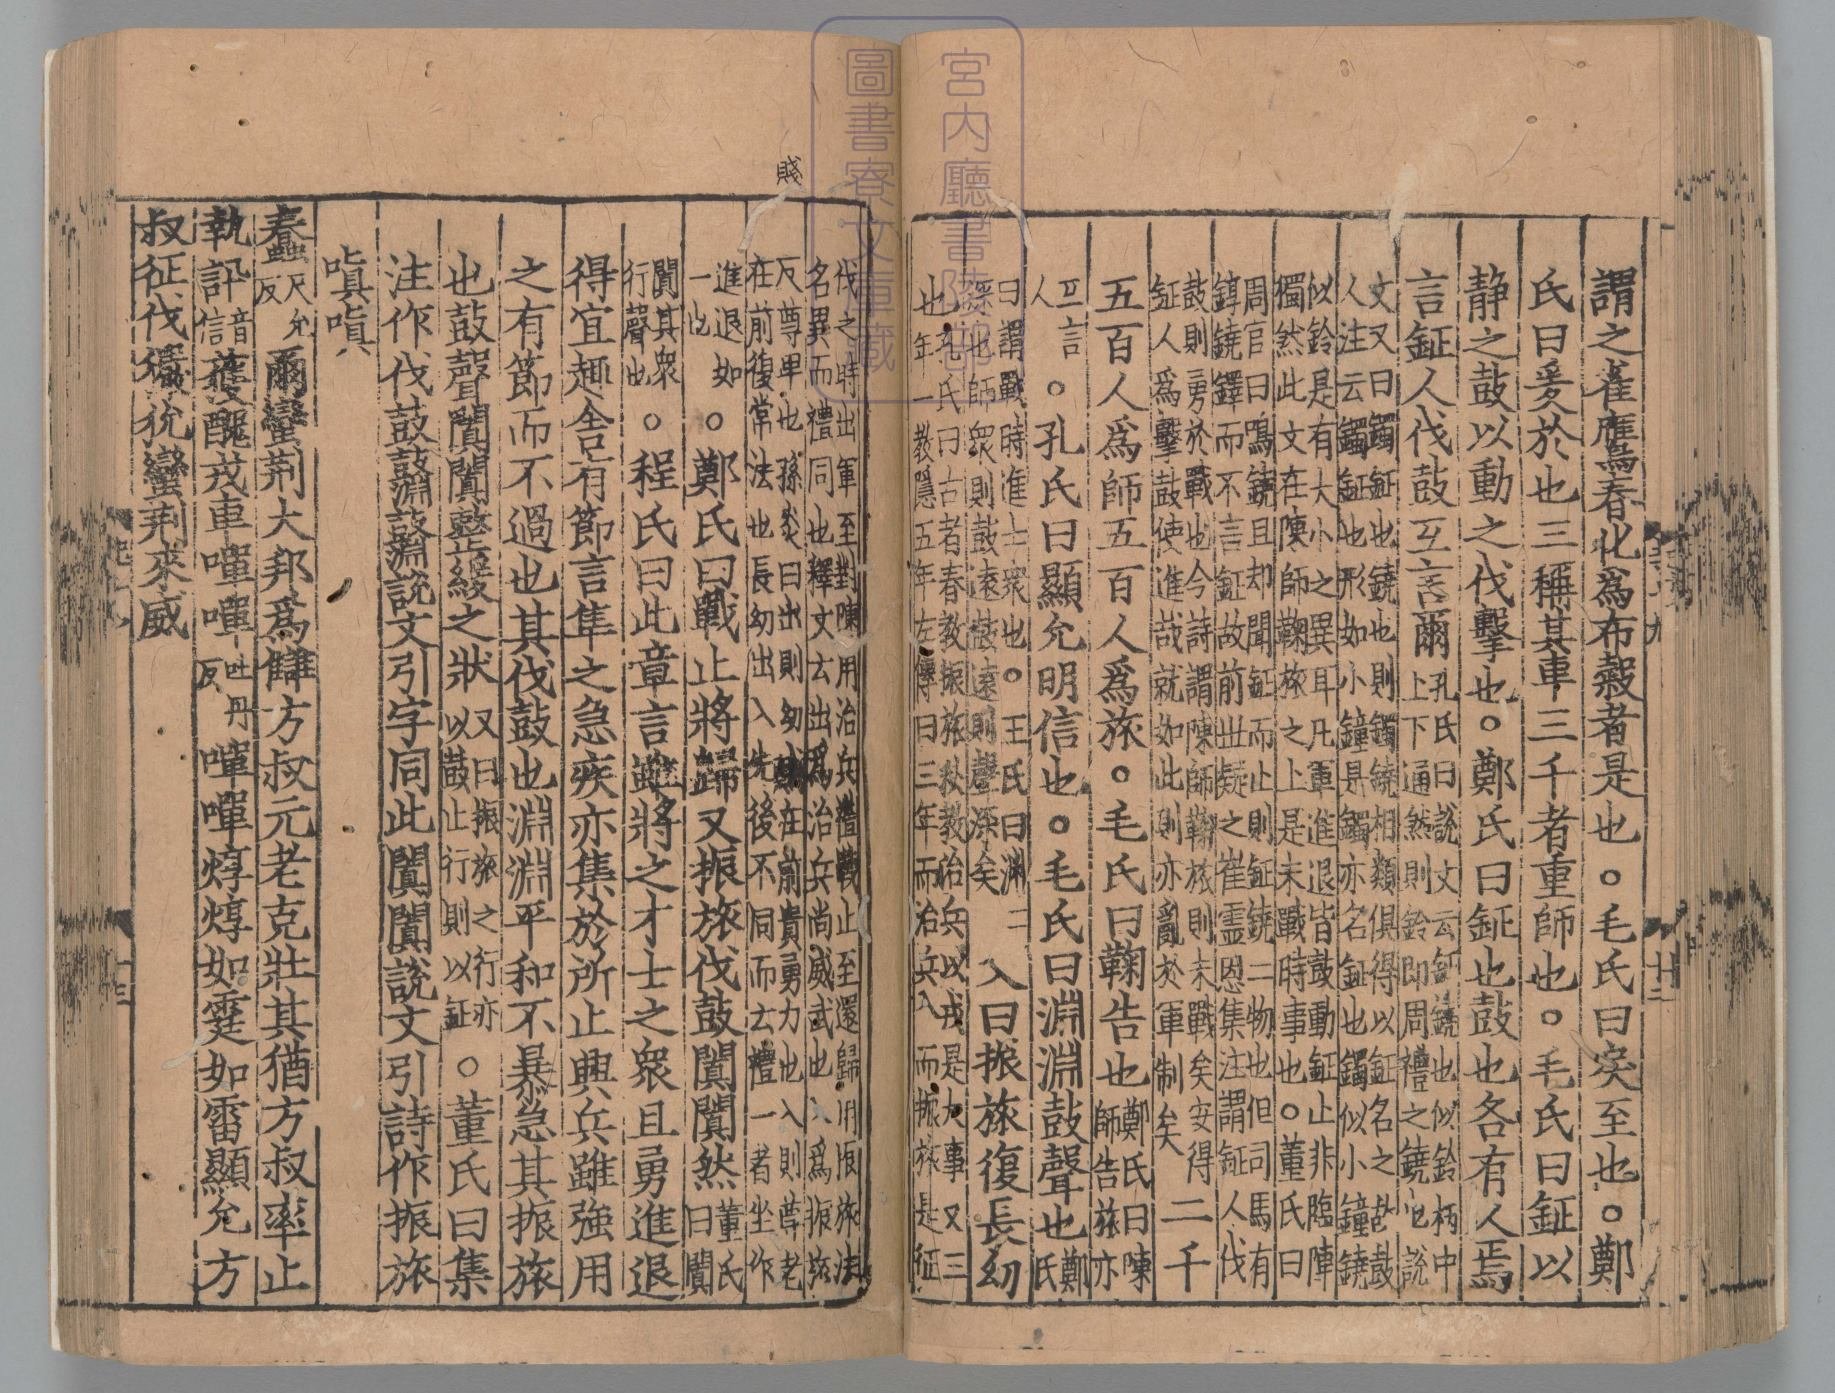 謂之雀鷹春化爲布穀者是也○毛氏曰戾至也○鄭
氏曰爰於也三稱其車三千者重師也○毛氏曰鉦以
静之鼓以動之伐擊也○鄭氏曰鉦也鼓也各有人焉
言鉦人伐鼓互言爾孔氏曰說文云鉦鐃也似鈴柄中
上下通然則鈴即周禮之鐃也說
文又曰鐲鉦也鐃也則鐲鐃相類俱得以鉦名之故鼓
人注云鐲鉦也形如小鐘是鐲亦名鉦也鐲似小鐘鐃
似鈴是有大小之異耳凡軍進退皆鼓動鉦止非臨陣
獨然此文在陳師鞠旅之上是未戰時事也○董氏曰
周官曰鳴鐃且却聞鉦而止則鉦鐃二物也但司馬有
錞鐃鐸而不言鉦故前世疑之崔靈恩集注謂鉦人伐
鼓則勇於戰也今詩謂陳師鞠旅則未戰矣安得
鉦人爲擊鼓使進哉就如此則亦亂於軍制矣
二千
五百人爲師五百人爲旅○毛氏曰鞠告也鄭氏曰陳
師告旅亦
互言
人
○孔氏曰顯允明信也○毛氏曰淵淵鼓聲也鄭
氏
曰謂戰時進士衆也○王氏曰淵
深也師衆則鼓遠鼓遠則聲深矣
入曰振旅復長幼
也孔氏曰古者春教振旅秋教治兵以戎是大事又三
年一教隱五年左傳曰三年而治兵入而振旅是征
伐之時出軍至對陳用治兵禮戰止至還歸用振旅法
名異而禮同也釋文云出爲治兵尚威武也入爲振旅
反尊卑也孫炎曰出則幼賤在前貴勇力也入則尊老
在前復常法也長幼出入先後不同而云禮一者坐作
進退如
一也
○鄭氏曰戰止將歸又振旅伐鼓闐闐然董氏
曰闐
闐其衆
行聲也
○程氏曰此章言遴將之才士之衆且勇進退
得宜趣舍有節言隼之急疾亦集於所止興兵雖強用
之有節而不過也其伐鼓也淵淵平和不暴急其振旅
也鼓聲闐闐整緩之狀又曰振旅之行亦
以鼓止行則以鉦○董氏曰集
注作伐鼓鼘鼘說文引字同此闐闐說文引詩作振旅
嗔嗔
蠢尺允
反爾蠻荆大邦爲讎方叔元老克壯其猶方叔率止
執訊音
信獲醜戎車嘽嘽吐丹
反嘽嘽焞焞如霆如雷顯允方
叔征伐玁狁蠻荆來威
賤
宮内廳書陵部
圖書寮文庫藏